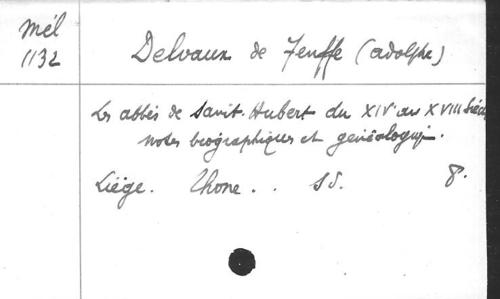 Mél
1132
Delvaux de Fenffe (Adolphe)
Les abbés de Saint-Hubert du XIVe au XVIII siècle
notes biographiques et généalogiq.
Liège. Thone. . sd. 8°.